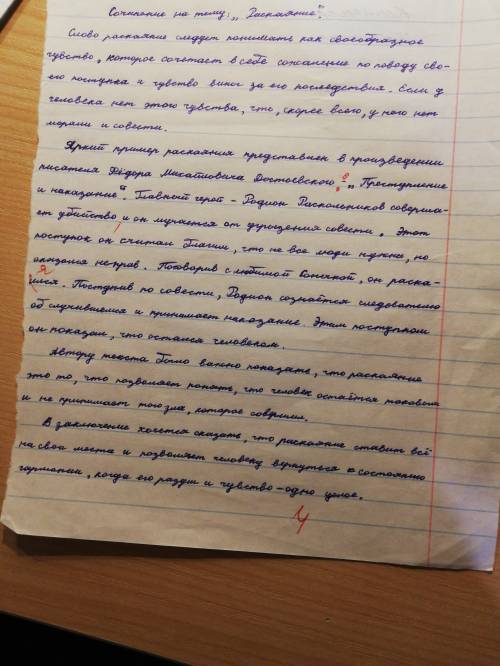 Сочинение на тему: „Раскаяние".
Слово раскаяние следует понимать как своеобразное
чувство, которое сочетает в себе сожаление по поводу сво-
его поступка и чувство вины за его последствия. Если у
человека нет этого чувства, что, скорее всего, у него нет
морали и совести.
Яркий пример раскаяния представлен в произведении
писателя Фёдора Михайловича Достоевского „Преступление
и наказание". Главной герой - Родион Раскольников соверша-
ет убийство и он мучается от угрызения совести. Этот
поступок он считал благим, что не все люди нужны, но
оказался неправ. Поговорив с любимой Сонечкой, он раска-
ялся. Поступив по совести, Родион сознаётся следователю
об случившемся и принимает наказание. Этим поступком
он показал, что остался человеком.
Автору текста было важно показать, что раскаяние
это то, что позволяет понять, что человек остаётся таковым
и не принимает того зла, которое совершил.
В заключение хочется сказать, что раскаяние ставит всё
на свои места и позволяет человеку вернуться к состоянию
гармонии, когда его разум и чувство - одно целое.
4